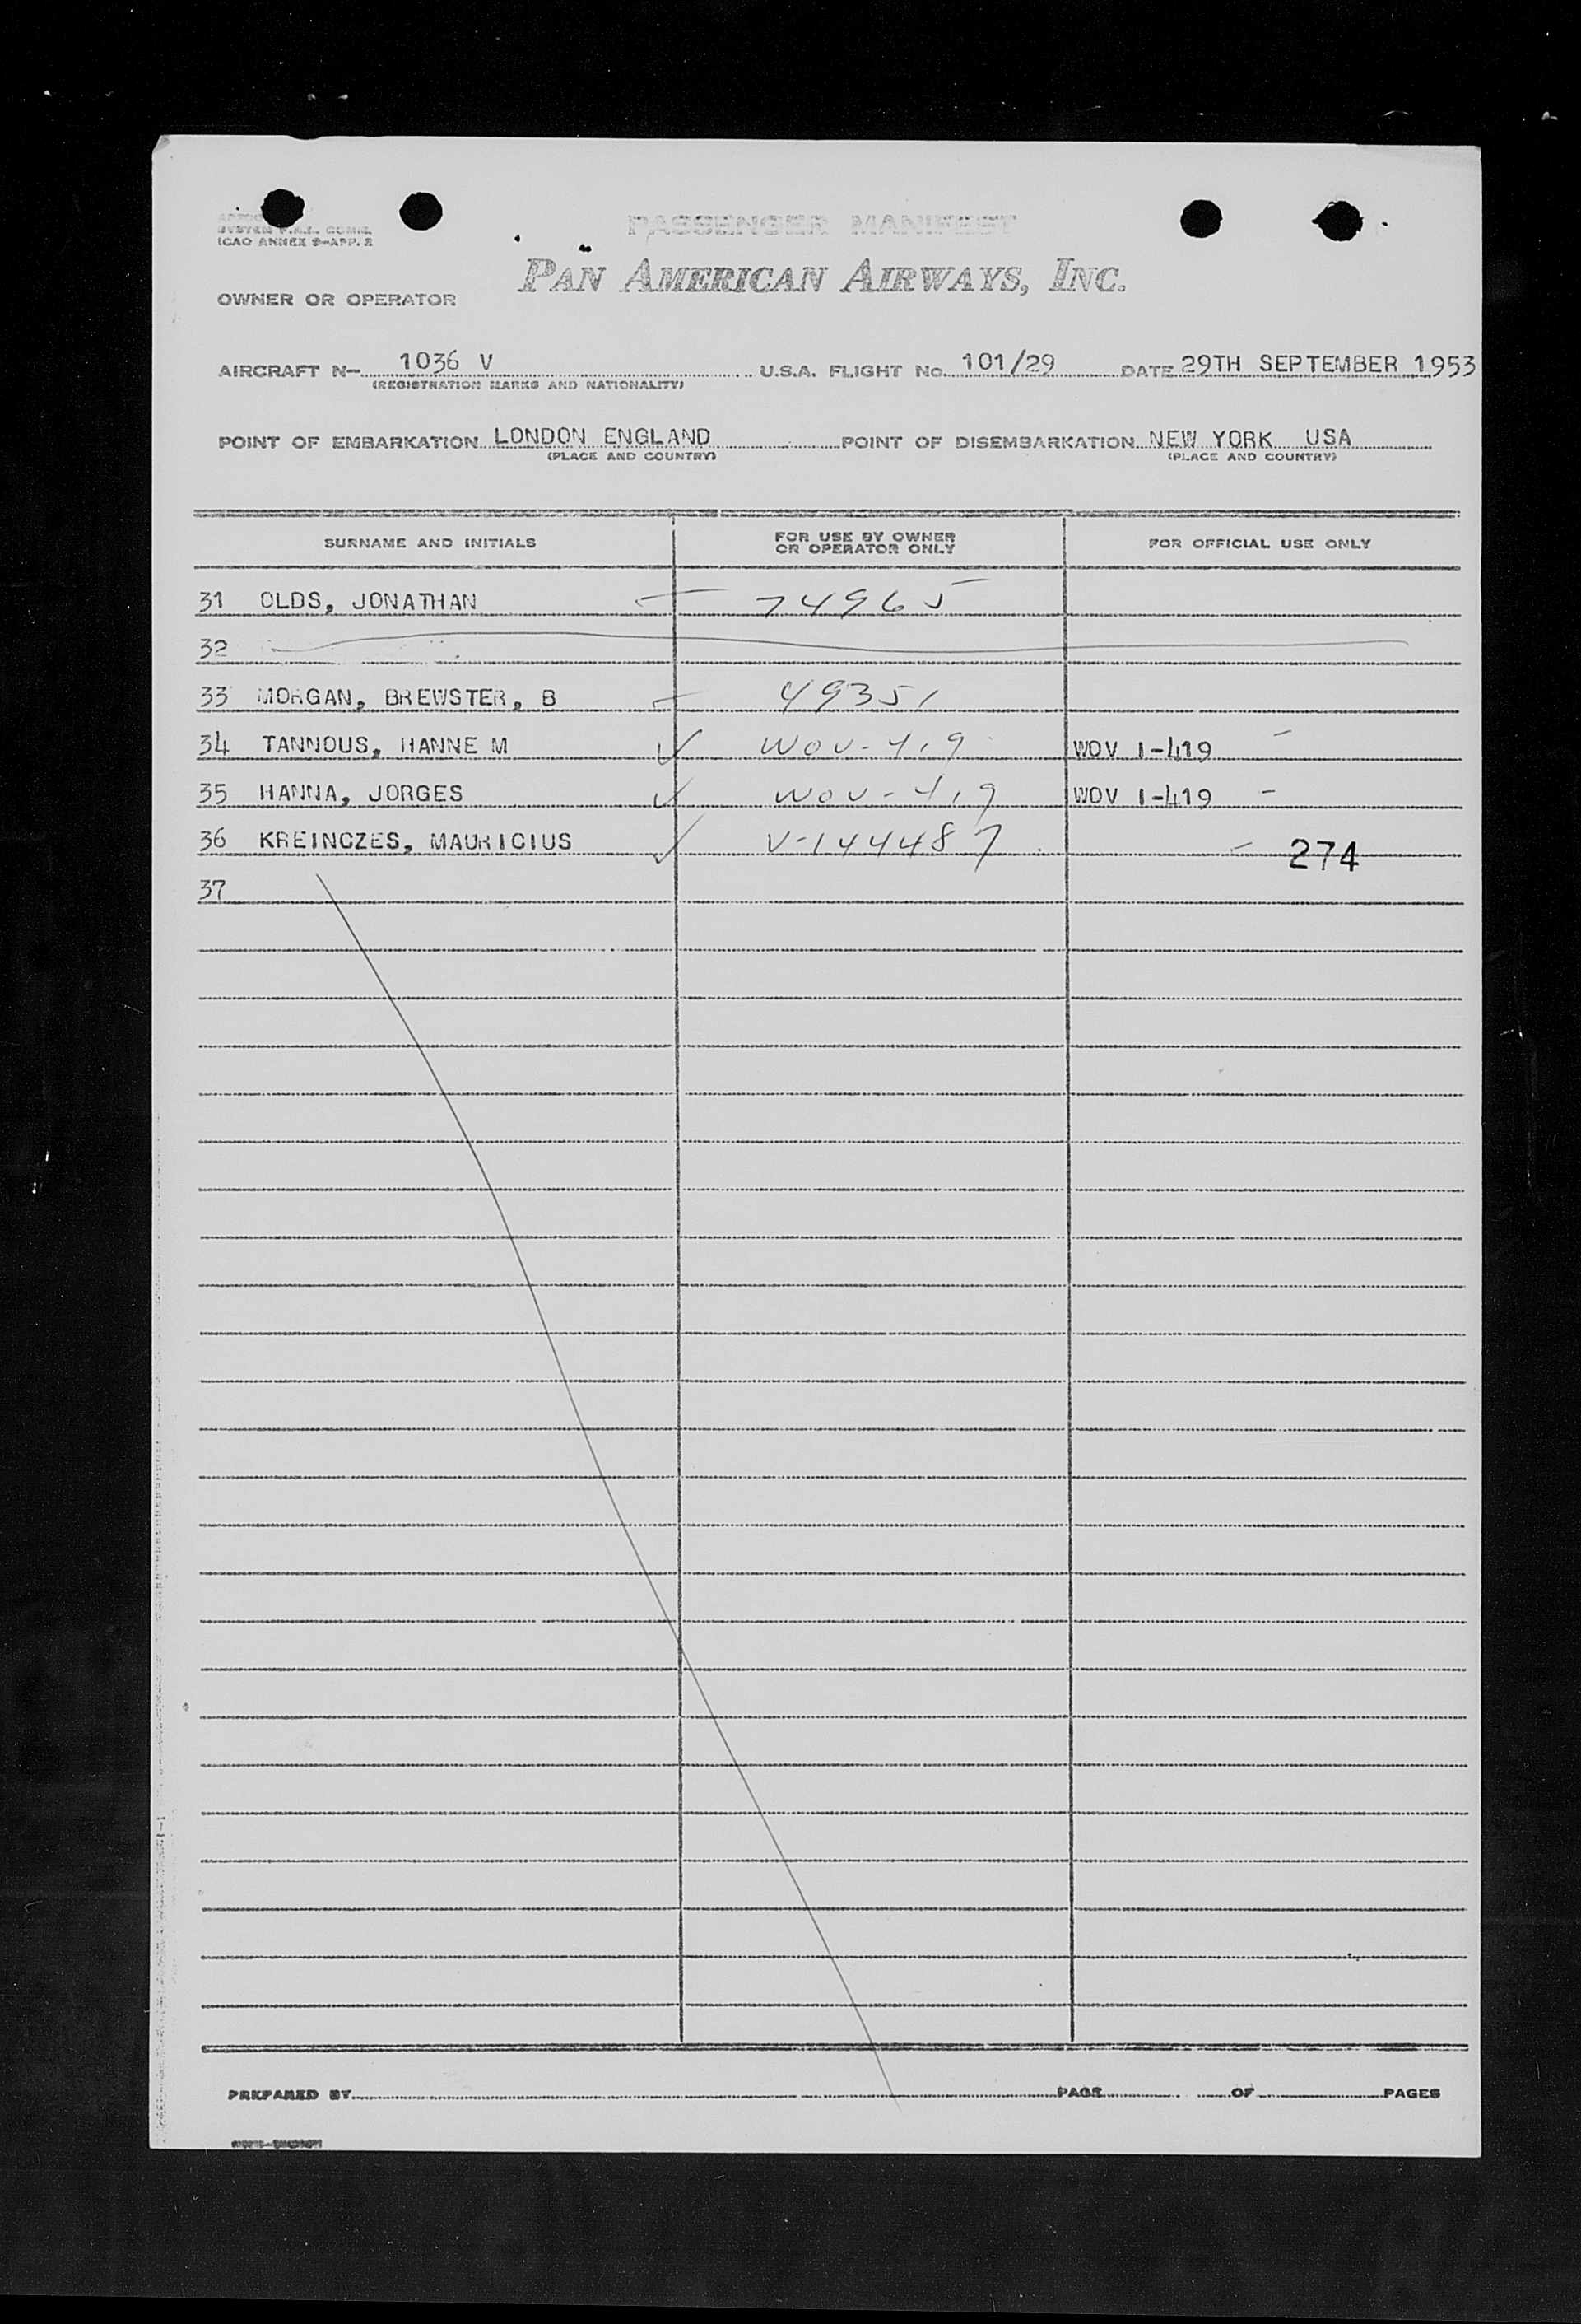 PASSENGER MANIFEST
ICAO ANNEX 9-APP. 2
PAN AMERICAN AIRWAYS, INC.
OWNER OR OPERATOR
AIRCRAFT N- 1036 V U.S.A. FLIGHT No. 101/29 DATE 29TH SEPTEMBER 1953
(REGISTRATION MARKS AND NATIONALITY)
POINT OF EMBARKATION LONDON ENGLAND POINT OF DISEMBARKATION NEW YORK USA
(PLACE AND COUNTRY) (PLACE AND COUNTRY)
SURNAME AND INITIALS FOR USE BY OWNER OR OPERATOR ONLY FOR OFFICIAL USE ONLY
31 OLDS, JONATHAN 74965
32
33 MORGAN, BREWSTER, B 49351
34 TANNOUS, HANNE M ✓ WOV-419 WOV 1-419 -
35 HANNA, JORGES ✓ WOV-419 WOV 1-419 -
36 KREINCZES, MAURICIUS ✓ V-144487 - 274
37
PREPARED BY PAGE OF PAGES